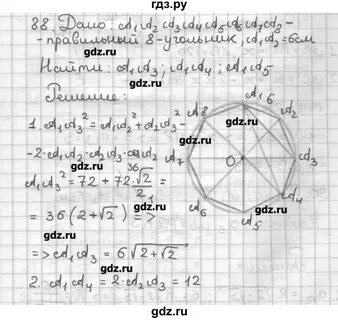 88. Дано: A₁A₂A₃A₄A₅A₆A₇A₈ -
- правильный 8-угольник, A₁A₂ = 6см
Найти: A₁A₃; A₁A₄; A₁A₅
Решение:
1. A₁A₃² = A₁A₂² + A₂A₃² -
- 2·A₁A₂·A₂A₃·cos A₂
A₁A₃² = 72 + 72·√2/2 =
36
1
= 36(2+√2) =>
=> A₁A₃ = 6√(2+√2)
2. A₁A₄ = 2·A₁A₃ = 12
A₁ 6
A₂
A₃
A₄
A₅
A₆
A₇
A₈
O
gdz.ru
gdz.ru
gdz.ru
gdz.ru
gdz.ru
gdz.ru
gdz.ru
gdz.ru